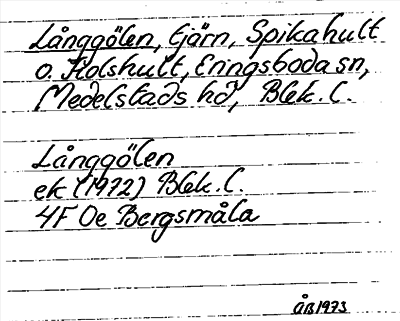 Långgölen, tjärn, Spikahult
o. Holshult, Eringsboda sn,
Medelstads hd, Blek. l.
Långgölen
ek (1972) Blek. l.
4F 0e Bergsmåla
ÅB 1973